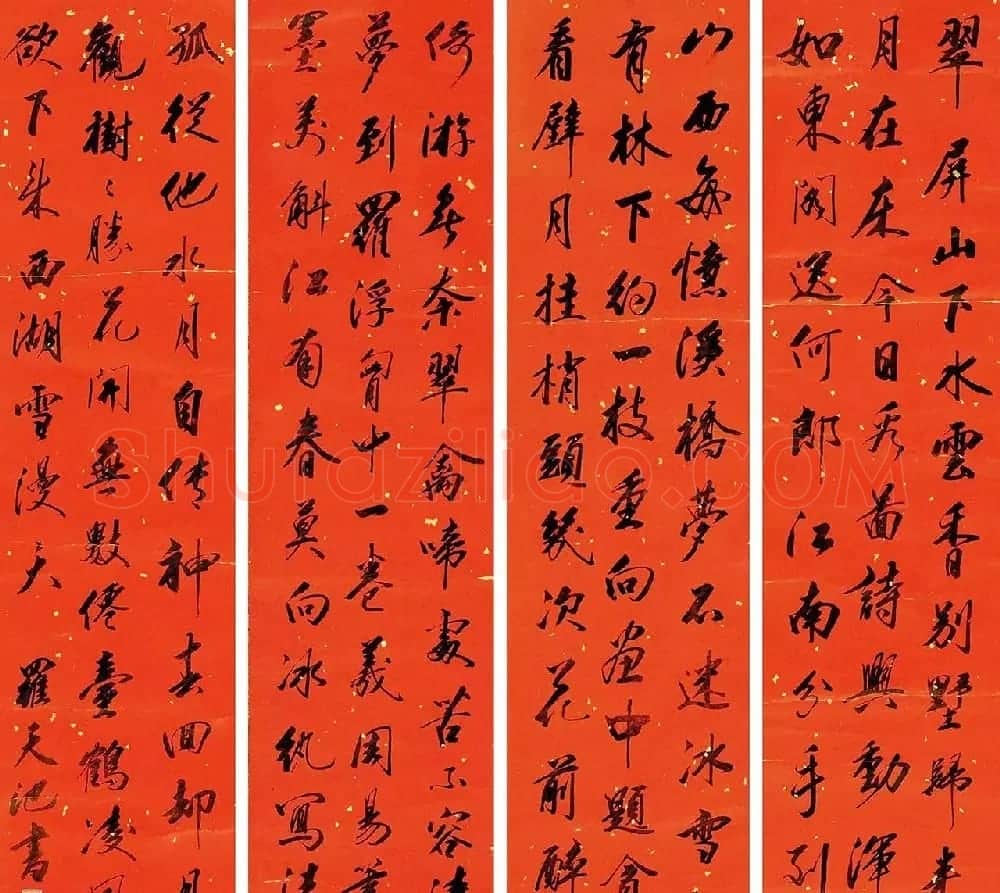 翠屏山下水雲香別墅歸來
月在床今日秀茁詩興動渾
如東閣送何郎江南分手到
山西每憶溪橋夢不迷冰雪
有林下約一枝重向画中題
看壁月挂梢頭幾次花前醉
倚游春奈翠禽啼處苦不容
夢到羅浮胸中一卷羲周易
墨万斛江南春莫向冰紈寫
孤從他水月自傳神去回却
觀樹〻勝花開無數倦臺鶴凌
欲下來西湖雪漫天 羅天池書
Shufaziliao.COM